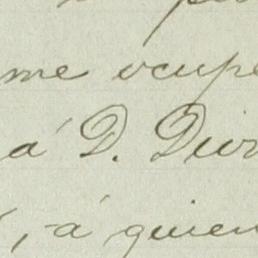 me ocupe
á D. Dur
, á quien